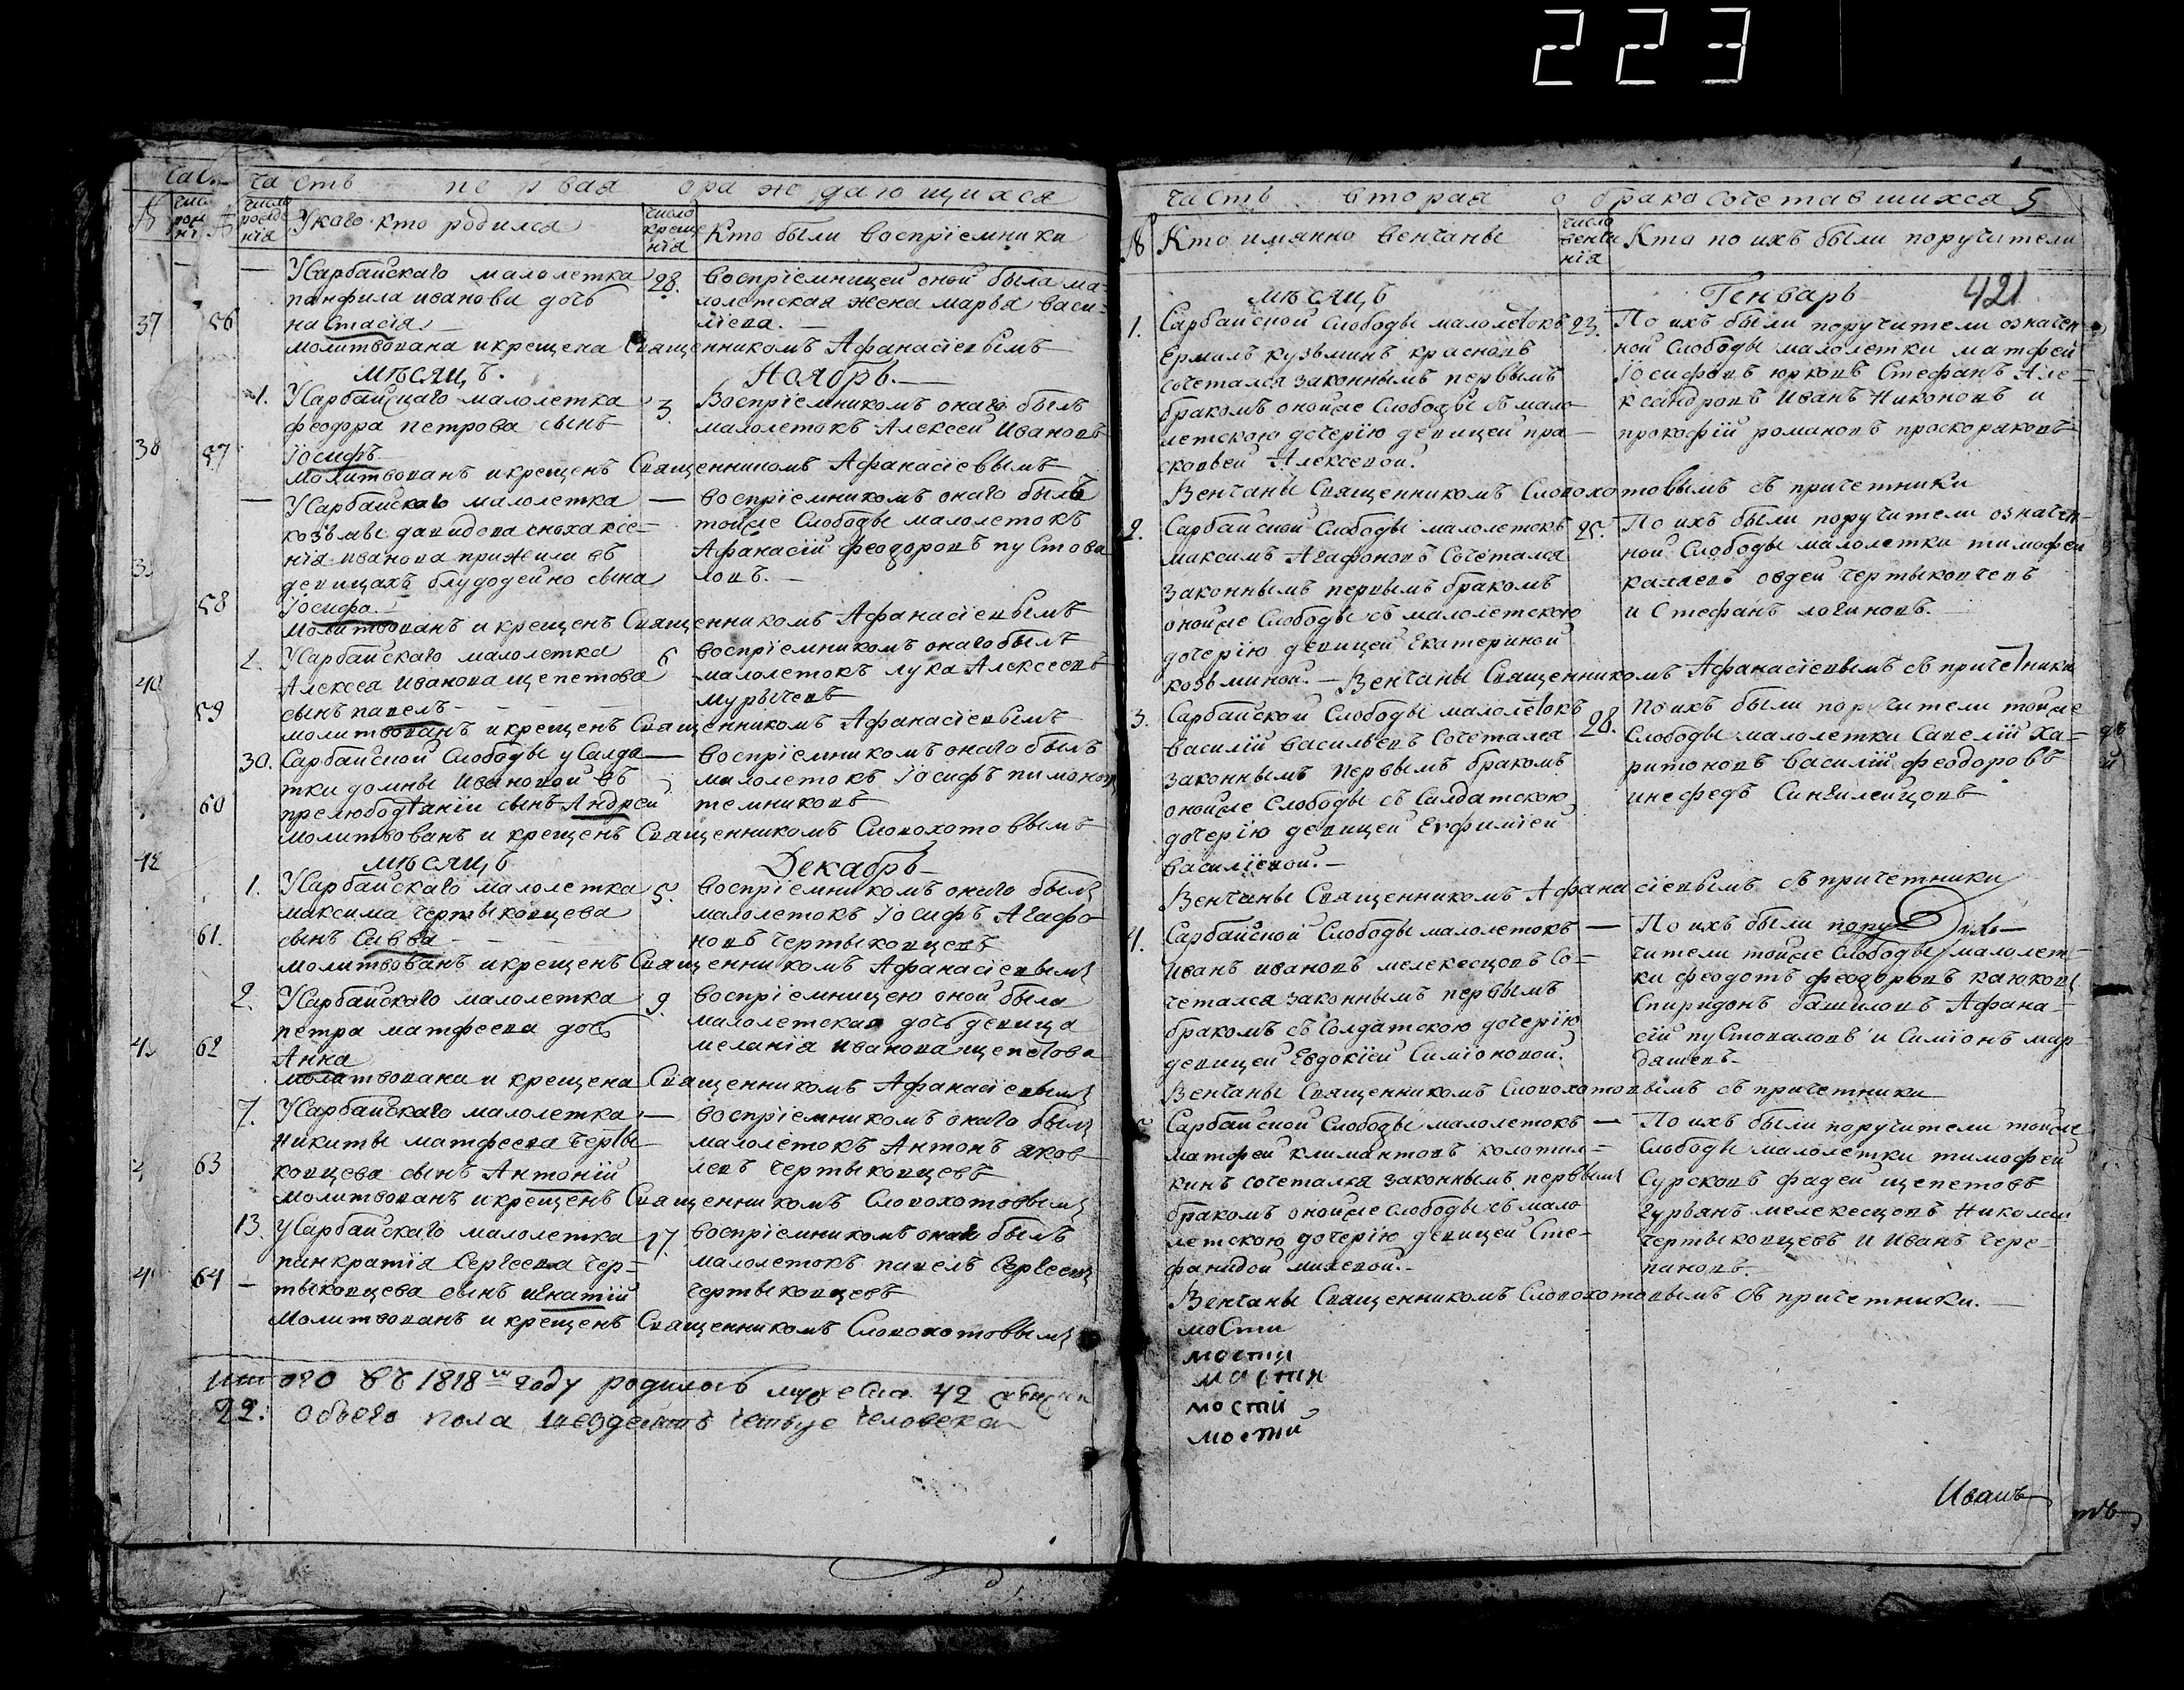 223
часть первая ораждающихся
Укаго кто родился
число крещенія
Кто были воспріемники
Усарбайскаго малолетка
панфила иванова дочь
37 56 настасія
28. воспріемницей оной была ма-
лолетская жена марья васи-
ліева.
молитвована и крещена Священникомъ Афанасіевымъ
мѣсяцъ. Ноябрь.
1. Усарбайскаго малолетка
феодора петрова сынъ
38 57 Іосифъ
3. Воспріемникомъ онаго былъ
малолетокъ Алексеи Ивановъ
молитвованъ и крещенъ Священникомъ Афанасіевымъ
— Усарбайскаго малолетка
козьмы давидова сноха ксе-
нія иванова прижила въ
девицахъ блудодейно сына
58 Іосифа.
— воспріемникомъ онаго былъ
тойже Слободы малолетокъ
Афанасій феодоровъ пустова
ловъ.
молитвованъ и крещенъ Священникомъ Афанасіевымъ
2. Усарбайскаго малолетка
Алексея Иванова щепетова
59 сынъ павелъ
6 воспріемникомъ онаго былъ
малолетокъ лука Алексеевъ
мурычевъ
молитвованъ и крещенъ Священникомъ Афанасіевымъ
30. Сарбайской Слободы у Салда
тки домны Ивановой въ
60 прелюбодѣяніи сынъ Андрей
— воспріемникомъ онаго былъ
малолетокъ Іосифъ пимонов
темниковъ
молитвованъ и крещенъ Священникомъ Словохотовымъ
мѣсяцъ Декабрь
1. Усарбайскаго малолетка
максима чертыковцева
61. сынъ Савва
5. воспріемникомъ онаго былъ
малолетокъ Іосифъ Агафо
новъ чертыковцевъ
молитвованъ и крещенъ Священникомъ Афанасіевымъ
2. Усарбайскаго малолетка
петра матфеева дочь
62 Анна
9. воспріемницею оной была
малолетская дочь девица
меланія иванова щепетова
молитвована и крещена Священникомъ Афанасіевымъ
7. Усарбайскаго малолетка
никиты матфеева черты-
63 ковцева сынъ Антоній
— воспріемникомъ онаго былъ
малолетокъ Антонъ яков
левъ чертыковцевъ
молитвованъ и крещенъ Священникомъ Словохотовымъ
13. Усарбайскаго малолетка
панкратія Сергеева чер-
64 — тыковцева сынъ игнатій
17. воспріемникомъ онаго былъ
малолетокъ павелъ Сергеевъ
чертыковцевъ
Молитвованъ и крещенъ Священникомъ Словохотовымъ
итого въ 1818 году родилось мужеска 42 женска
22. обоего пола шездесятъ четыре человека
часть вторая о бракосочетавшихся 5
Кто имянно венчаны
число венчанія
Кто по ихъ были поручители
421
мѣсяцъ Генварь
1. Сарбайской Слободы малолетокъ
Ермилъ кузьминъ красновъ
сочетался законнымъ первымъ
бракомъ онойже Слободы съ мало
летскою дочерію девицей пра-
сковьей Алексевой.
23. По ихъ были поручители означен-
ной Слободы малолетки матфей
Іосифовъ юрковъ Стефанъ Але-
ксандровъ Иванъ Никоновъ и
прокофій романовъ проскоряковъ
Венчаны Священникомъ Словохотовымъ съ причетники
2. Сарбайской Слободы малолетокъ
максимъ Агафоновъ Сочетался
законнымъ первымъ бракомъ
онойже Слободы съ малолетскою
дочерію девицей Екатериной
козьминой. — Венчаны Священникомъ Афанасіевымъ съ причетники
25. По ихъ были поручители означен-
ной Слободы малолетки тимофей
овдей чертыковцевъ
и Стефанъ логиновъ.
3. Сарбайской Слободы малолетокъ
василій васильевъ Сочетался
законнымъ первымъ бракомъ
онойже Слободы съ Салдатскою
дочерію девицей Евфиміей
василіевой.
28. По ихъ были поручители тойже
Слободы малолетки Савелій Ха-
ритоновъ василій феодоровъ
инефедъ Сингилейцовъ
Венчаны Священникомъ Афанасіевымъ съ причетники
4. Сарбайской Слободы малолетокъ
Иванъ ивановъ мелекесцовъ Со-
четался законнымъ первымъ
бракомъ съ Солдатскою дочерію
девицей Евдокіей Симіоновой.
— По ихъ были пору
чители тойже Слободы малолет-
ки феодотъ феодоровъ каюковъ
Спиридонъ башиловъ Афана-
сій пустоваловъ и Симіонъ мар
дашевъ
Венчаны Священникомъ Словохотовымъ съ причетники
Сарбайской Слободы малолетокъ
матфей климантовъ колотил-
кинъ сочетался законнымъ первымъ
бракомъ онойже слободы съ мало
летскою дочерію девицей Сте-
фанидой михевой.
— По ихъ были поручители тойже
Слободы малолетки тимофей
Сурсковъ фадей щепетовъ
гурьянъ мелекесцовъ Николай
чертыковцевъ и Иванъ чере-
пановъ.
Венчаны Священникомъ Словохотовымъ съ причетники.
мости
мости
мости
мости
мости
Иванъ